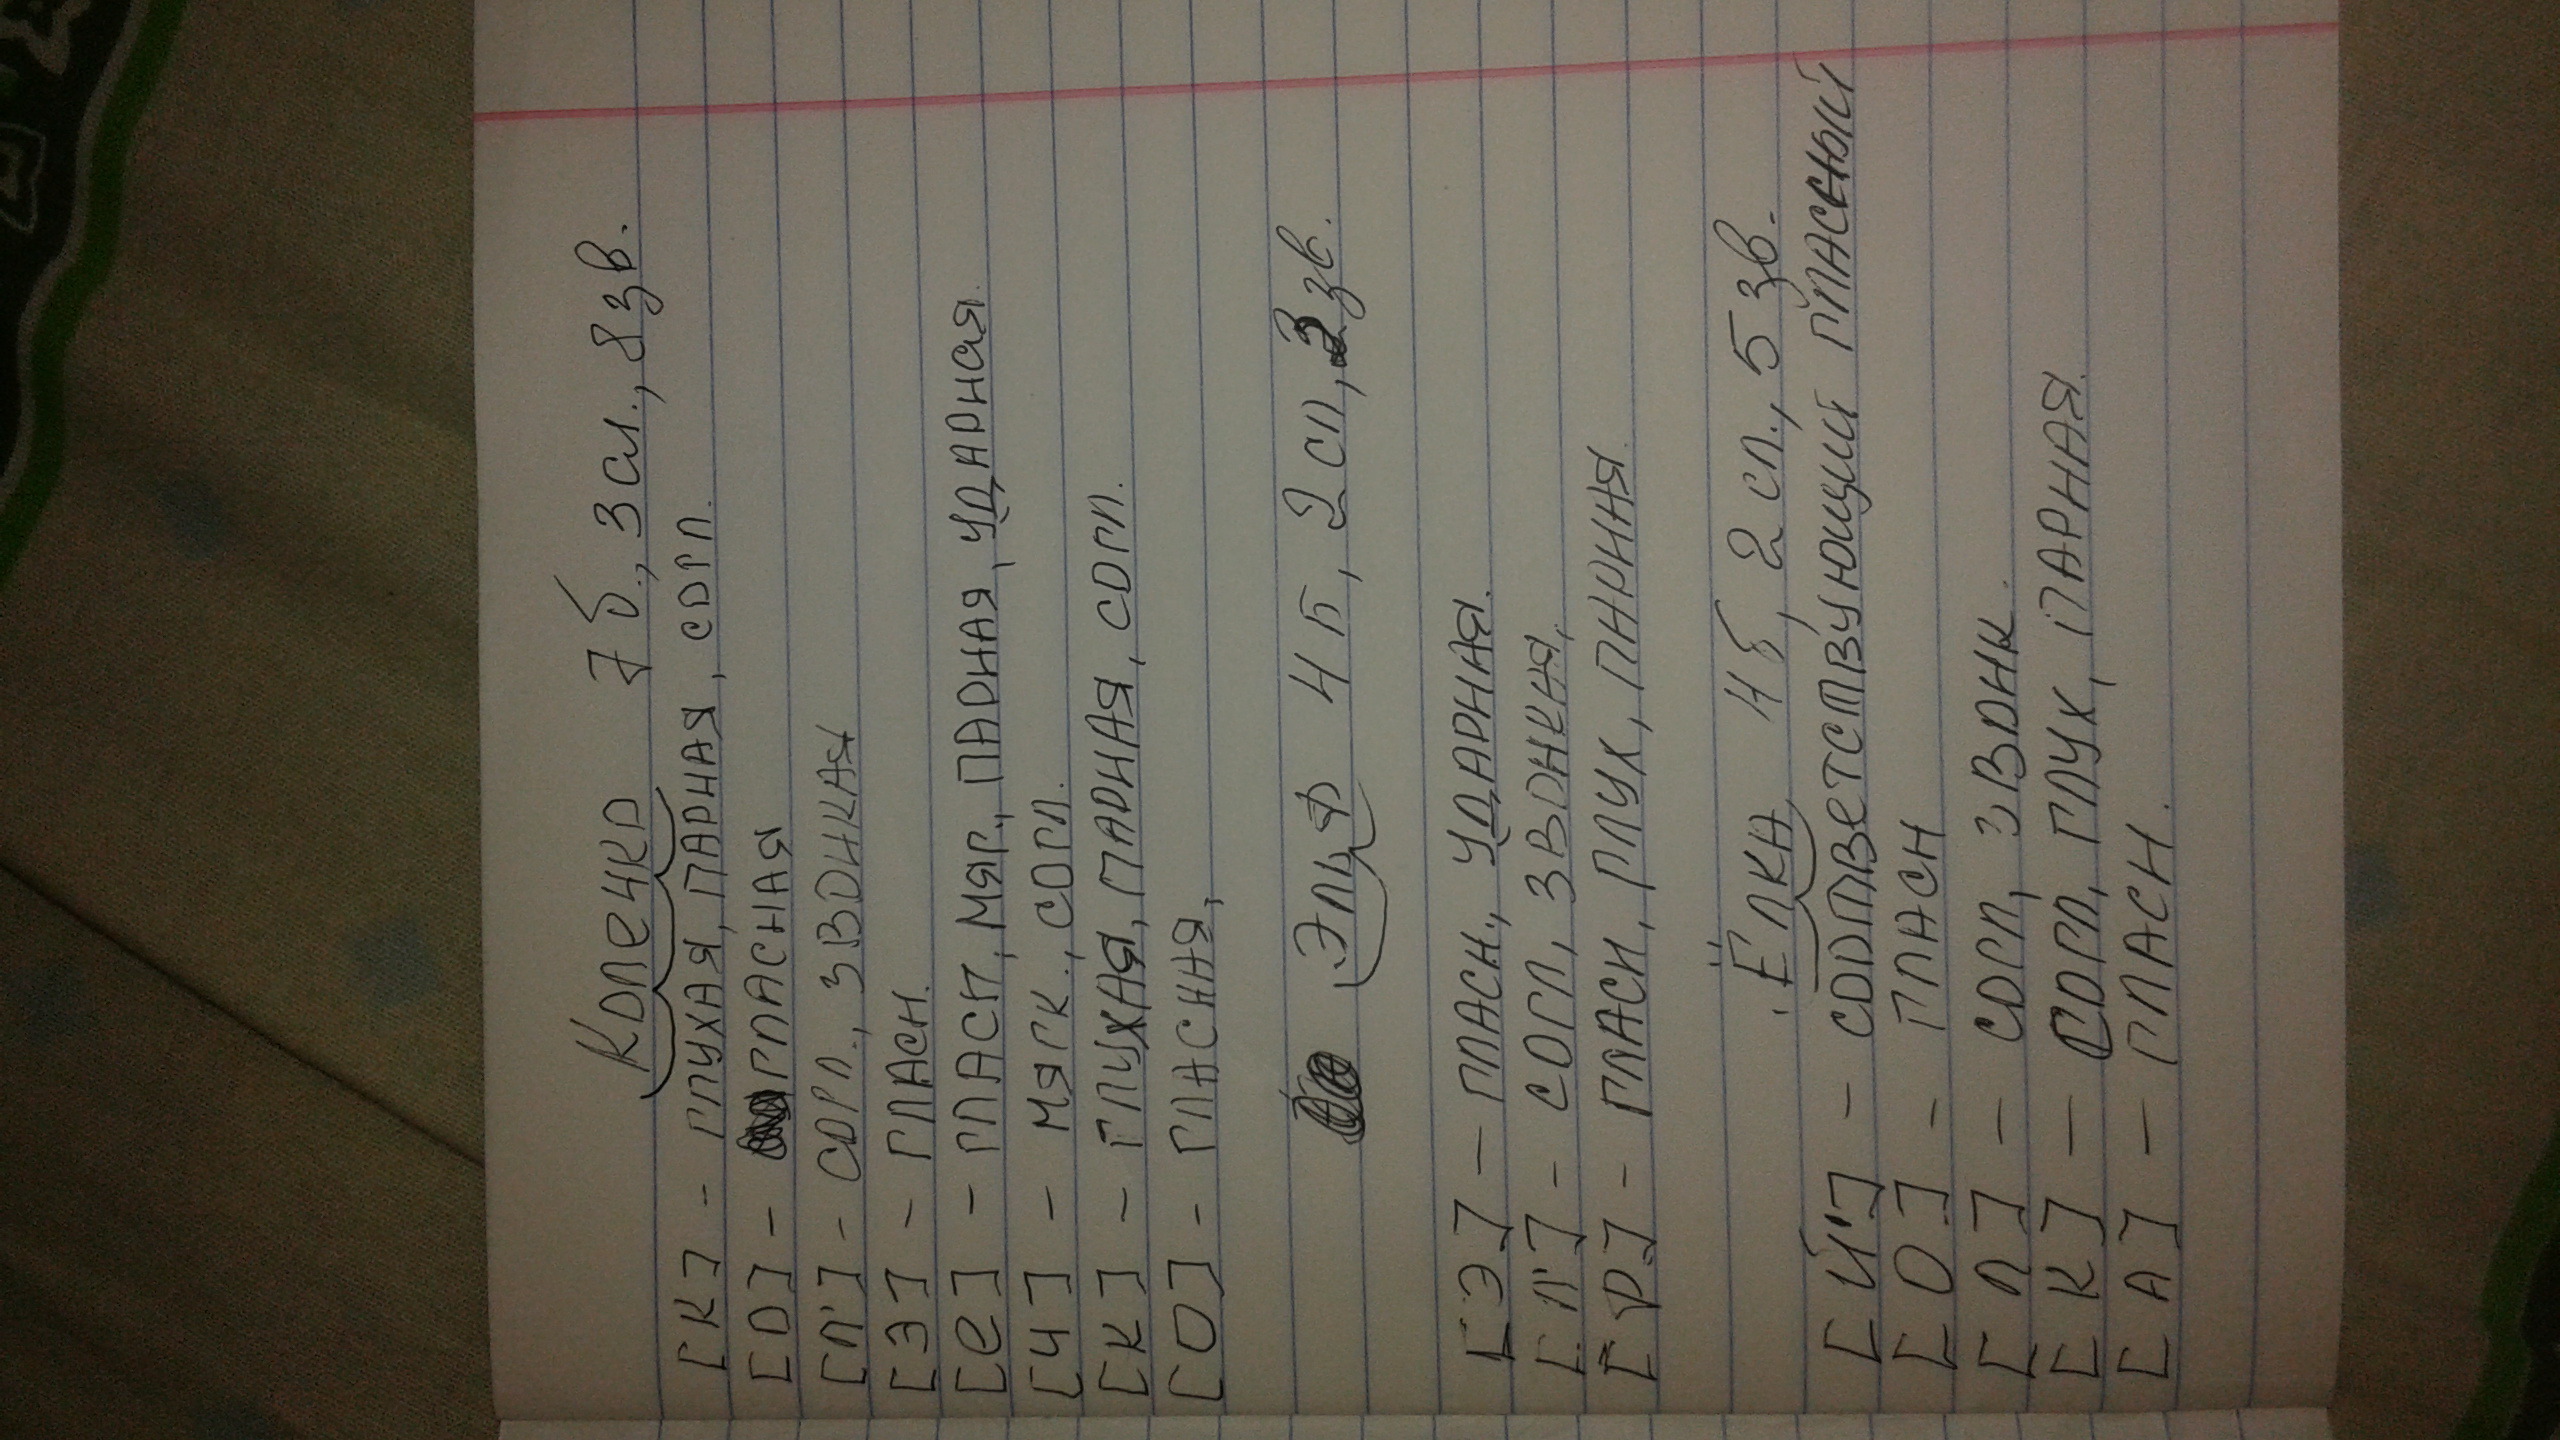 Колечко 7 б., 3 сл., 8 зв.
[К] - глухая, парная, согл.
[О] - гласная
[Л'] - согл., звонкая
[Э] - гласн.
[е] - гласн, мяг., парная, ударная.
[Ч] - мягк., согл.
[К] - глухая, парная, согл.
[О] - гласная,
Эльф 4 б, 2 сл, 3 зв.
[Э] - гласн., ударная.
[Л'] - согл, звонкая,
[Р] - гласн, глух, парная
Ёлка 4 б, 2 сл., 5 зв.
[Й'] - соответствующий гласный
[О] - гласн
[Л] - согл, звонк.
[К] - согл, глух, парная.
[А] - гласн.